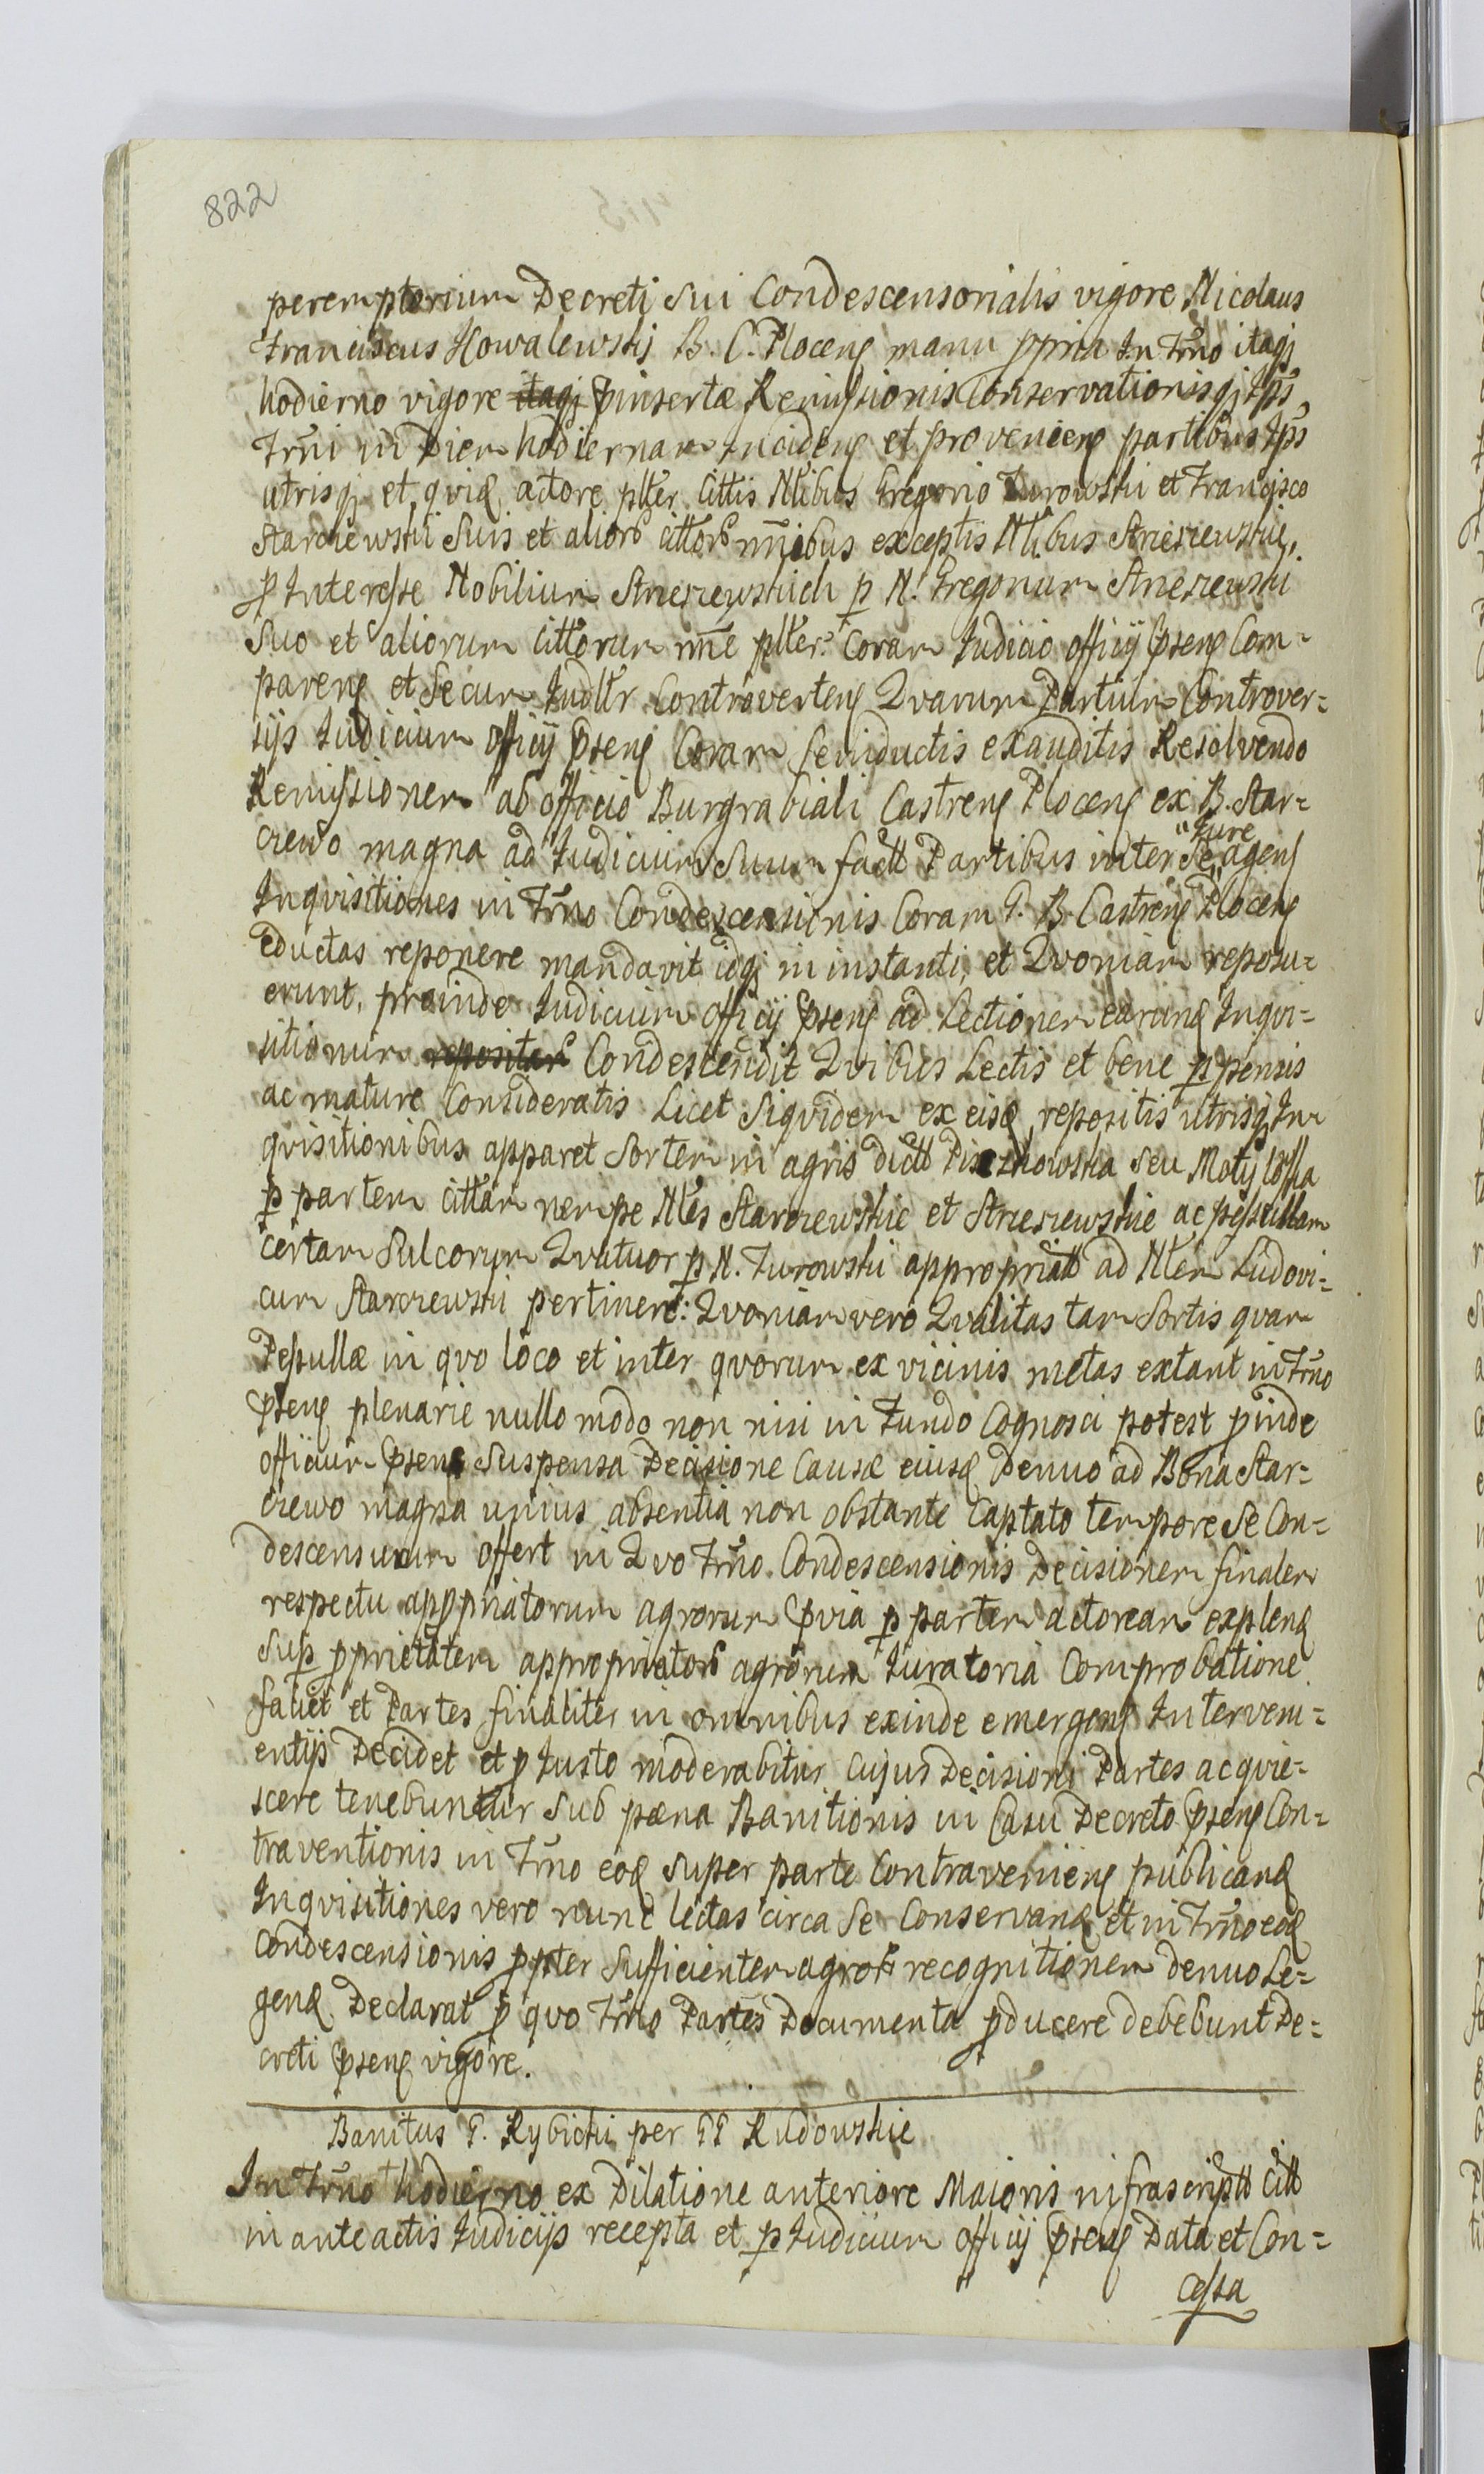 822
peremptorium Decreti sui Condescensorialis vigore Nicolaus
Franciscus Kowalewskij B. C. Ploceng manu ppria In Trno itaqj
hodierno vigore itaqj pinsertæ Remissionis Conservationisqj Jps
Trni in Diem hodiernam incideng et provenieng partibus Jps
utrisqj et qvid actore plter Cittis Nlibus Gregorio Turowski et Francisco
Starczewski suis et alior cittor nnibus exceptis Nlibus Strzeszewskie.
p Interesse Nobilium Strzeszewskich p N. Gregorium Strzeszewski
suo et aliorum cittorum nne plter. Coram Judicio officij pseng Com=
pareng et Secum Judltr Controverteng Qvarum Partium Controver=
sijs Judicium officij pseng Coram seinductis exauditis Resolvendo
Remissionem ab officio Burgrabiali Castreng Ploceng ex B. Star=
czewo magna ad Judicium Suum factt Partibus inter Se Jure ageng
Inqvisitiones in Trno Condescensionis Coram G. B. Castreng Ploceng
eductas reponere mandavit idqj in instanti, et Qvoniam reposu=
erunt, proinde Judicium officij pseng ad Lectionem earund Inqvi=
sitionum repositar Condescendit Qvibus Lectis et bene ppensis
ac mature Consideratis Licet Siqvidem ex eisd repositis utrisqj In
qvisitionibus apparet Sortem in agris dictt seu Motylossa
p partem cittam nempe Nles Starczewskie et Strzeszewskie ac pessullam
certam Sulcorum Qvatuor p N. Turowski appropriatt ad Nlem Ludovi=
cum Starczewski pertinere: Qvoniam vero Qvalitas tam Sortis qvam
Pessullæ in qvo loco et inter qvorum ex vicinis metas extant in Trno
pseng plenarie nullo modo non nisi in Fundo Cognosci potest pinde
officium pseng Suspensa Decisione Causæ eiusd Denuo ad Bona Star=
czewo magna unius absentia non obstante Captato tempore Se Con=
descensurum offert in Qvo Trno Condescensionis Decisionem finalem
respectu appropriatorum agrorum pvia p partem actoream explend
Sup pprietatem appropriator agrorum Juratoria Comprobatione
faciet et Partes finaliter in omnibus exinde emergeng Interveni=
entijs Decidet et p Justo moderabitur Cujus Decisioni Partes acqvie=
scere tenebuntur sub pæna Banitionis in Casu Decreto pseng Con=
traventionis in Trno eod super parte Contravenieng publicand
Inqvisitiones vero nunc lectas circa Se Conservand et in Trno eod
Condescensionis ppter Sufficientem agror recognitionem denuo Le=
gend Declarat p qvo Trno Partes Documenta pducere debebunt De=
creti pseng vigore.
Banitus G. Rybicki per GG Rudowskie
In Trno hodierno ex Dilatione anteriore Maioris infrascriptt Citt
in anteactis Judicijs recepta et p Judicium officij pseng Data et Con=
cessa